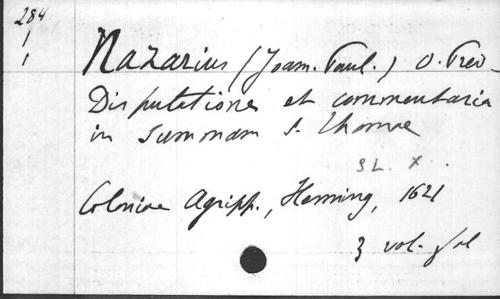 284
1
1
Nazarius (Joam. Paul.) O. Pred.
Disputationes et commentaria
in Summam S. Thomae
SL. X
Coloniae Agripp., Henning, 1621
3 vol. fol